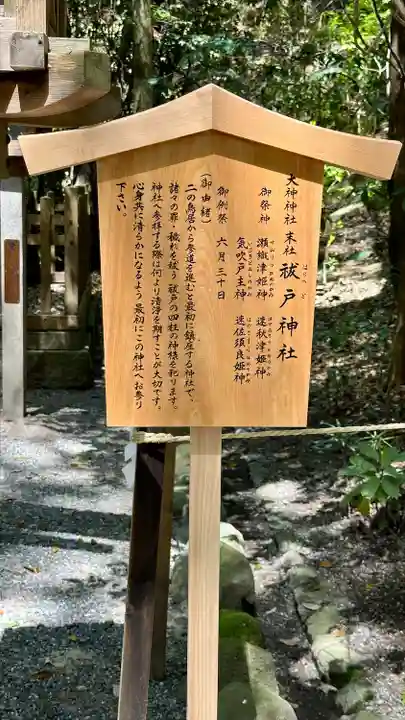 大神神社 末社 祓戸神社
はらへど
御祭神 瀬織津姫神 速秋津姫神
気吹戸主神 速佐須良姫神
御例祭 六月三十日
(御由緒)
二の鳥居から参道を進むと最初に鎮座する神社で、
諸々の罪・穢れを祓う祓戸の四柱の神様を祀ります。
神社へ参拝する際は何より清浄を期すことが大切です。
心身共に清らかになるよう最初にこの神社へお参り
下さい。